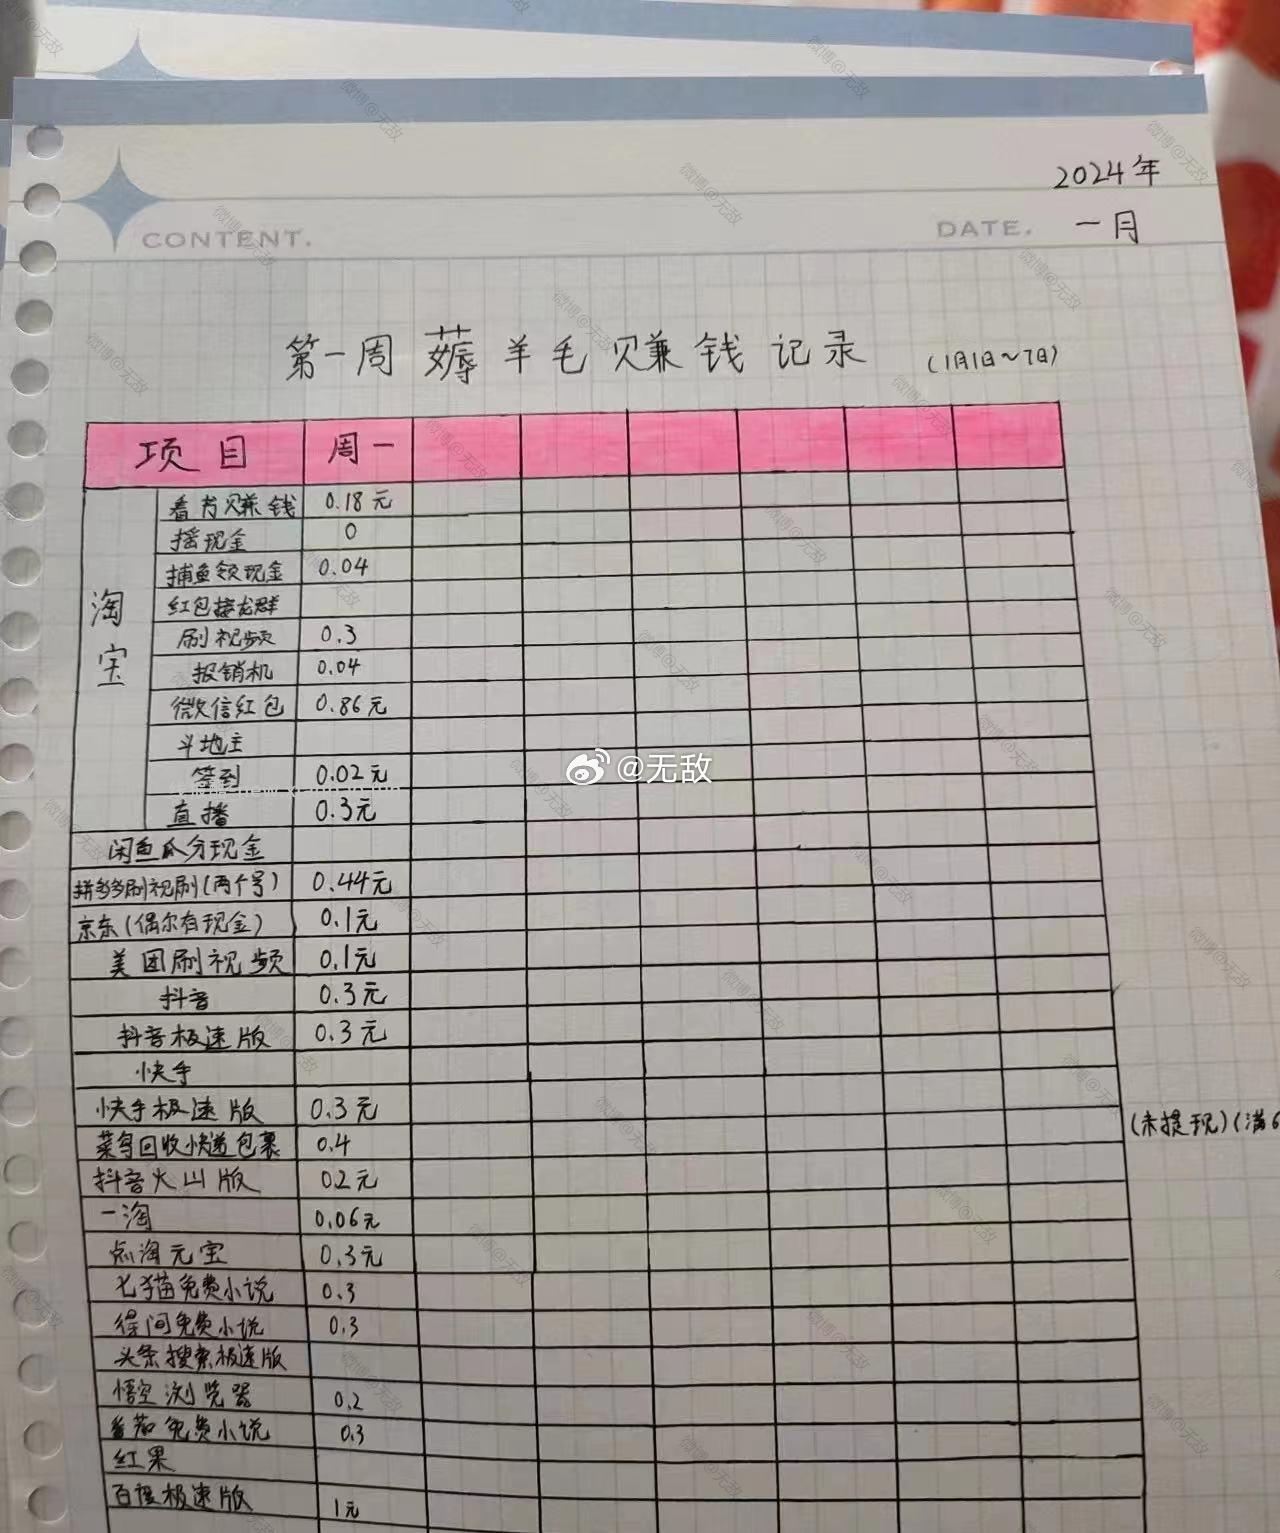 2024年
CONTENT.
DATE. 一月
第一周 薅羊毛赚钱记录 (1月1日~7日)
项目 周一
淘宝
看书赚钱 0.18元
摇现金 0
捕鱼领现金 0.04
红包接龙群
刷视频 0.3
报销机 0.04
微信红包 0.86元
斗地主
@无敌
签到 0.02元
直播 0.3元
闲鱼瓜分现金
拼多多刷视刷(两个号) 0.44元
京东(偶尔有现金) 0.1元
美团刷视频 0.1元
抖音 0.3元
抖音极速版 0.3元
快手
快手极速版 0.3元
(未提现)(满6
菜鸟回收快递包裹 0.4
抖音火山版 02元
一淘 0.06元
点淘元宝 0.3元
七猫免费小说 0.3
得间免费小说 0.3
头条搜索极速版
悟空浏览器 0.2
番茄免费小说 0.3
红果
百度极速版 1元
微博@无敌